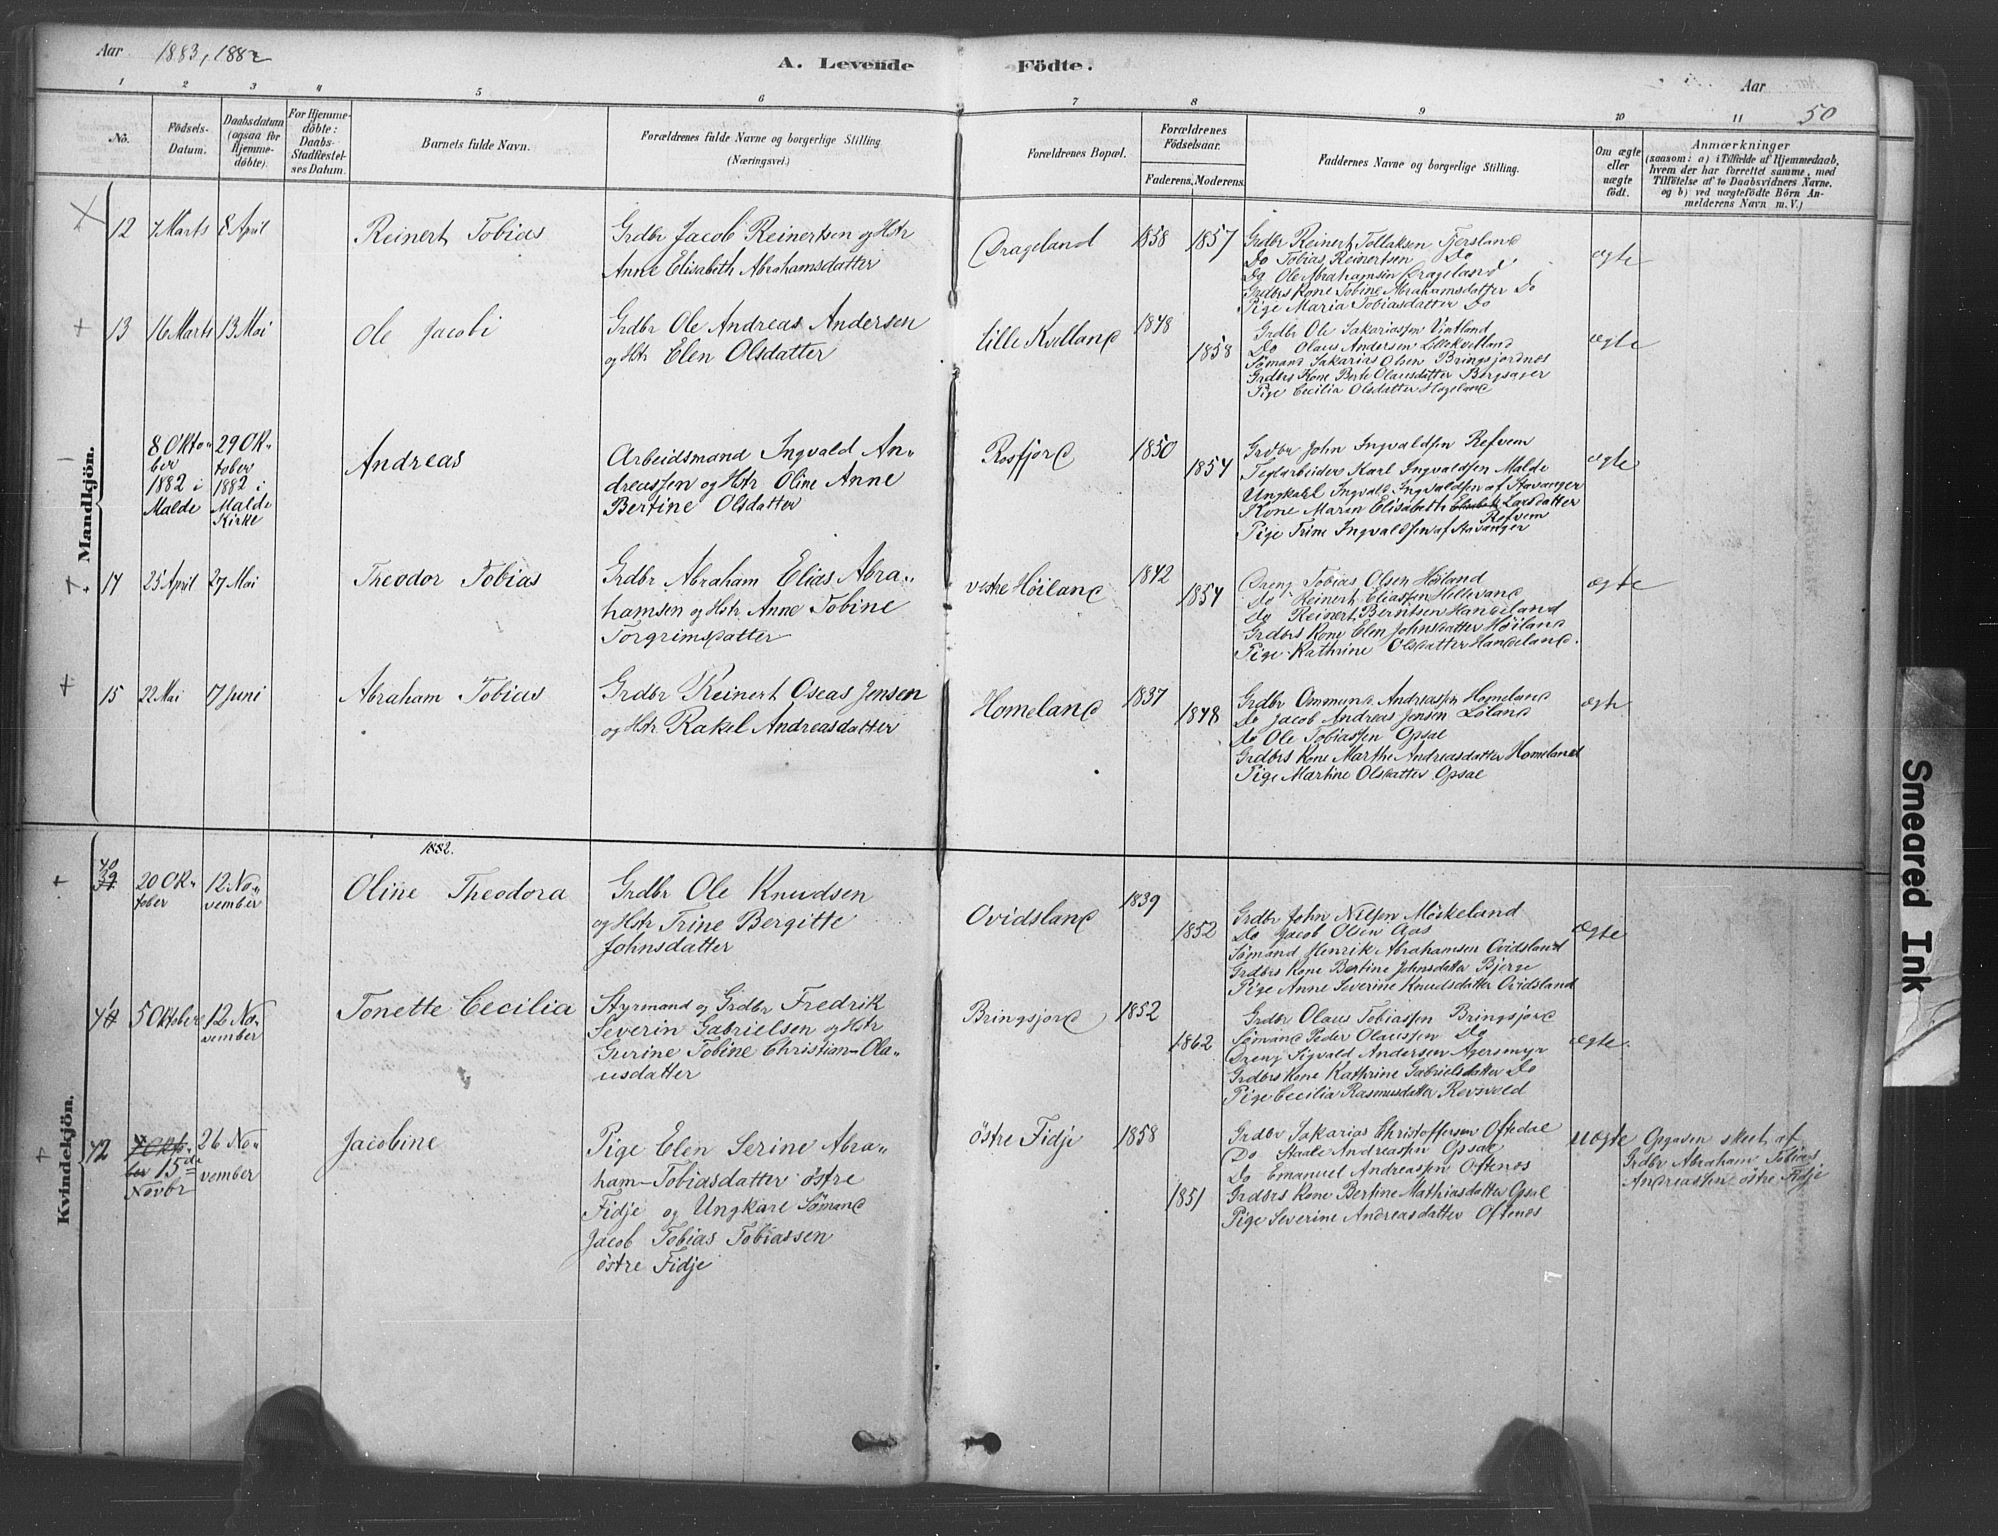 Aar 1883, 1882
A. Levende Födte.
Aar
50
1 2 3 4 5 6 7 8 9 10 11
No.
Födsels-Datum.
Daabsdatum (ogsaa for Hjemme-döbte).
For Hjemme-döbte: Daabs-Stadfæstel-ses Datum.
Barnets fulde Navn.
Forældrenes fulde Navne og borgerlige Stilling (Næringsvei.)
Forældrenes Bopæl.
Forældrenes Födselsaar.
Faderens. Moderens.
Faddernes Navne og borgerlige Stilling.
Om ægte eller uægte födt.
Anmærkninger
(saasom: a) i Tilfælde af Hjemmedaab,
hvem der har forrettet samme, med
Tilföielse af to Daabsvidners Navne.
og b) ved uægtefödte Börn An-
melderens Navn m. V.)
Mandkjön.
12 7 Marts 8 April Reinert Tobias
Grdbr Jacob Reinertsen og Hstr
Anne Elisabeth Abrahamsdatter
Drageland 1858 1857
Grdbr Reinert Tollaksen Fjersland
Do Tobias Reinertsen Do
Do Ole Abrahamsen Drageland
Grdbrs Kone Tobine Abrahamsdatter Do
Pige Maria Tobiasdatter Do
ægte
13 16 Marts 13 Mai Ole Jacobi
Grdbr Ole Andreas Andersen
og Hstr Elen Olsdatter
Lille Kvelland 1848 1858
Grdbr Ole Sakariassen Vintland
Do Olaus Andersen Lillekvelland
Sømand Sakarias Olsen Bringsjordnes
Grdbrs Kone Berte Olausdatter Bergsager
Pige Cecilia Olsdatter Hageland
ægte
8 Okto-
ber
1882 i
Malde
29 Ok-
tober
1882 i
Malde
Kirke
Andreas
Arbeidsmand Ingvald An-
dreassen og Hstr Oline Anne
Bertine Olsdatter
Rosfjord 1850 1854
Grdbr John Ingvaldsen Refvem
Teglarbeider Karl Ingvaldsen Malde
Ungkarl Ingvald Ingvaldsen af Stavanger
Kone Maren Elisabeth Larsdatter
Refvem
Pige Trine Ingvaldsen af Stavanger
ægte
14 25 April 27 Mai Theodor Tobias
Grdbr Abraham Elias Abra-
hamsen og Hstr Anne Tobine
Torgrimsdatter
vestre Höiland 1842 1854
Dreng Tobias Olsen Höiland
Do Reinert Eliassen Hellivand
Do Reinert Berntsen Handeland
Grdbrs Kone Elen Johnsdatter Höiland
Pige Kathrine Olsdatter Handeland.
ægte
15 22 Mai 17 Juni Abraham Tobias
Grdbr Reinert Oseas Jensen
og Hstr Rakel Andreasdatter
Homeland 1837 1848
Grdbr Ommund Andreassen Homeland
Do Jacob Andreas Jensen Löland
Do Ole Tobiassen Opsal
Grdbrs Kone Marthe Andreasdatter Homeland
Pige Martine Olsdatter Opsal
ægte
Kvindekjön.
1882.
40
39
20 Ok-
tober
12 No-
vember
Oline Theodora
Grdbr Ole Knudsen
og Hstr Trine Bergitte
Johnsdatter
Ovidsland 1839 1852
Grdbr John Nilsen Möskeland
Do Jacob Olsen Aas
Sømand Henrik Abrahamsen Ovidsland
Grdbrs Kone Bertine Johnsdatter Bjerge
Pige Anne Severine Knudsdatter Ovidsland
ægte
41 5 Oktober 12 No-
vember
Tonette Cecilia
Styrmand og Grdbr Fredrik
Severin Gabrielsen og Hstr
Gurine Tobine Christian-Ola-
usdatter
Bringsjord 1852 1862
Grdbr Olaus Tobiassen Bringsjord
Sømand Peder Olaussen Do
Dreng Sigvald Andersen Agersmyr
Grdbrs Kone Kathrine Gabrielsdatter Do
Pige Cecilia Rasmusdatter Rövsvold
ægte
42 7 Okto-
ber 15de
Novbr
26 No-
vember
Jacobine
Pige Elen Serine Abra-
ham-Tobiasdatter östre
Fidje og Ungkarl Sömand
Jacob Tobias Tobiassen
östre Fidje
östre Fidje 1858 1851
Grdbr Sakarias Christoffersen Oftedal
Do Staale Andreassen Opsal
Do Emanuel Andreassen Oftenes
Grdbrs Kone Bertine Mathiasdatter Opsal
Pige Severine Andreasdatter Oftenes
uægte
Opgaven skeet af
Grdbr Abraham Tobias
Andreassen östre Fidje
Smeared Ink